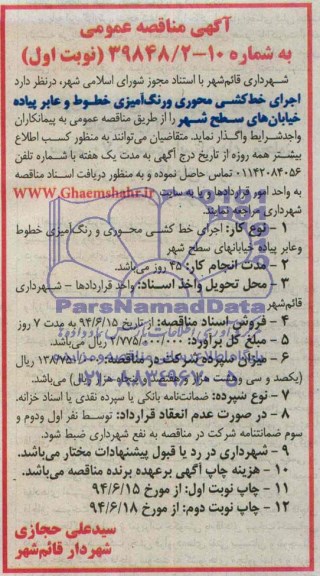 آگهی مناقصه عمومی
به شماره ۱۰-۳۹۸۴۸/۲ (نوبت اول)
شهرداری قائم‌شهر با استناد مجوز شورای اسلامی شهر، درنظر دارد
اجرای خط‌کشی محوری ورنگ‌آمیزی خطوط و عابر پیاده
خیابان‌های سطح شهر را از طریق مناقصه عمومی به پیمانکاران
واجدشرایط واگذار نماید. متقاضیان می‌توانند به منظور کسب اطلاع
بیشتر همه روزه از تاریخ درج آگهی به مدت یک هفته با شماره تلفن
۰۱۱۴۲۰۸۴۰۵۶ تماس حاصل نموده و به منظور دریافت اسناد مناقصه
به واحد امور قراردادها و یا به سایت www.Ghaemshahr.ir
شهرداری مراجعه نمایند.
۱ - نوع کار: اجرای خط کشی محوری و رنگ آمیزی خطوط
وعابر پیاده خیابانهای سطح شهر
۲ - مدت انجام کار: ۴۵ روز می‌باشد.
۳ - محل تحویل واخذ اسناد: واحد قراردادها – شهرداری
قائم‌شهر
۴ - فروش اسناد مناقصه: از تاریخ ۹۴/۶/۱۵ به مدت ۷ روز
۵ - مبلغ کل برآورد: ۲/۷۷۵/۰۰۰/۰۰۰ ریال
۶ - میزان سپرده شرکت در مناقصه: ریال
(یکصد و سی وهشت هزار وهفتصد و پنجاه هزار ریال) می‌باشد.
۷ - نوع سپرده: ضمانت‌نامه بانکی یا سپرده نقدی یا اسناد خزانه.
۸ - در صورت عدم انعقاد قرارداد: توسط نفر اول ودوم و
سوم ضمانتنامه شرکت در مناقصه به نفع شهرداری ضبط شود.
۹ - شهرداری در رد یا قبول پیشنهادات مختار می‌باشد.
۱۰ - هزینه چاپ آگهی برعهده برنده مناقصه می‌باشد.
۱۱ - چاپ نوبت اول: از مورخ ۹۴/۶/۱۵
۱۲ - چاپ نوبت دوم: از مورخ ۹۴/۶/۱۸
سیدعلی حجازی
شهردار قائم‌شهر
ParsNamadData
۰۲۱-۸۸۳۴۹۶۷۰-۵